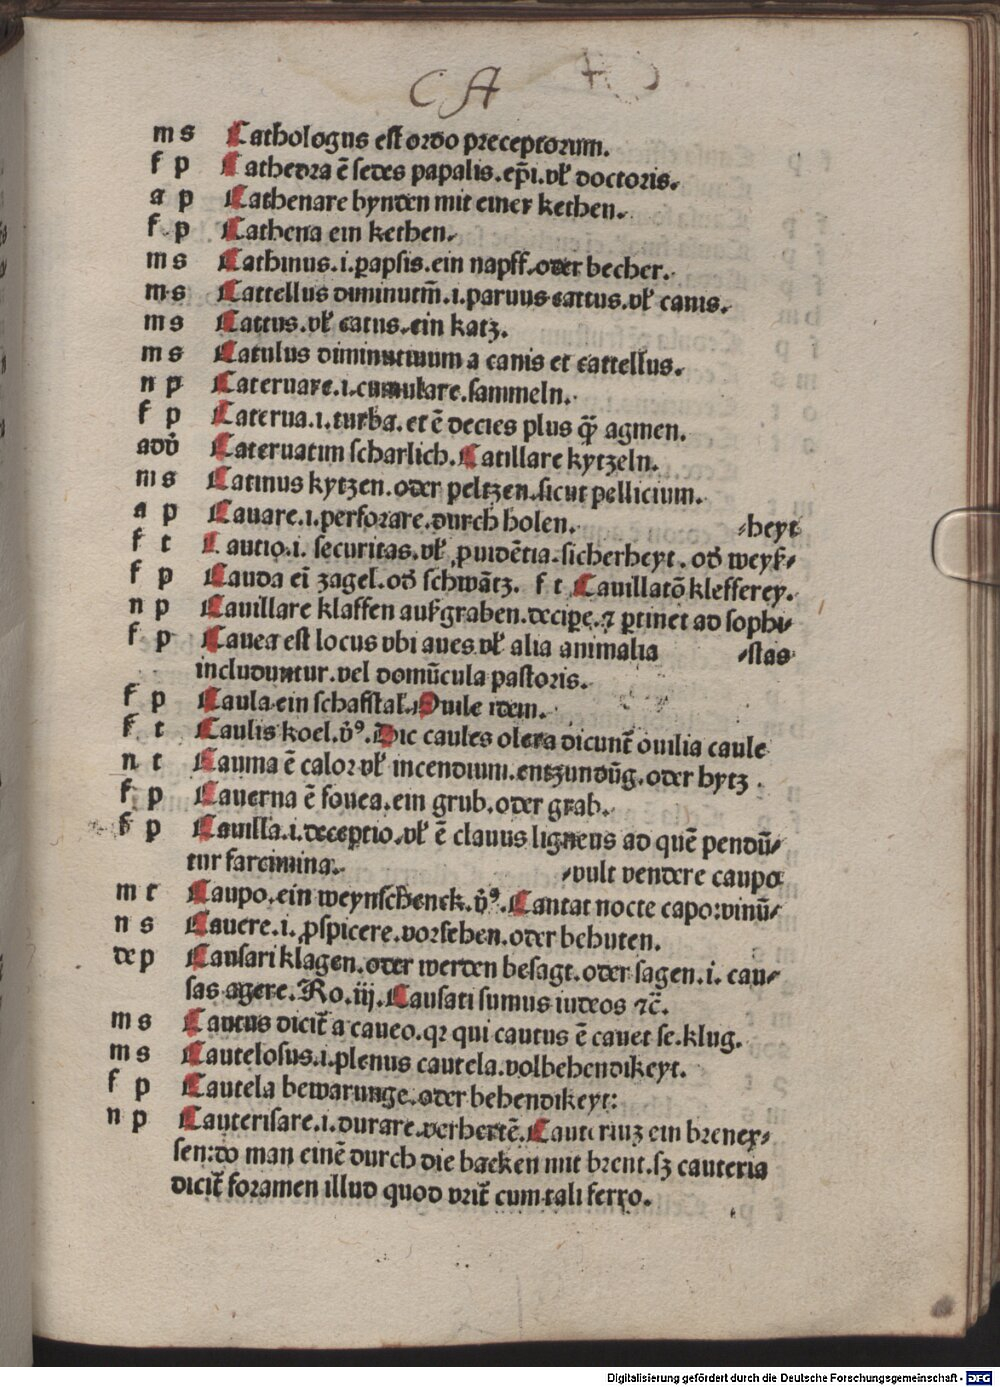 CA
m s Cathologus est ordo preceptorum.
f p Cathedra ē sedes papalis.ep̄i.vl̓ doctoris.
a p Cathenare bynden mit einer kethen.
f p Cathena ein kethen.
m s Cathinus.i.parapsis.ein napff.oder becher.
m s Cattellus diminutiū.i.paruus cattus.vl̓ canis.
m s Cattus.vl̓ catus.ein katz.
m s Catulus diminutiuum a canis et cattellus.
n p Cateruare.i.cumulare.sammeln.
f p Caterua.i.turba.et ē decies plus q̄ȝ agmen.
adv̓ Cateruatim scharlich.Catillare kytzeln.
m s Catinus kytzen.oder peltzen.sicut pellicium.
a p Cauare.i.perforare.durch holen. ⸗heyt
f t Cautio.i.securitas.vl̓ ꝓuidētia.sicherheyt.od̓ weyß⸗
f p Cauda ei᷒ zagel.od̓ schwātz. f t Cauillatō klefferey.
n p Cauillare klaffen außgraben.decipe̱.⁊ ꝑtinet ad sophi⸗
f p Cauea est locus vbi aues.vl̓ alia animalia ⸗stas
includuntur.vel domūcula pastoris.
f p Caula ein schafstal.Ouile idem.
f t Caulis koel.v̓ꝰ.Dic caules olera dicunt̄ ouilia caule
n t Cauma ē calor vl̓ incendium.entzundūg.oder hytz.
f p Cauerna ē fouea.ein grub.oder grab.
f p Cauilla.i.deceptio.vl̓ ē clauus ligneus ad quē pendū⸗
tur farcimina. ⸗vult vendere caupo
m t Caupo.ein weynschenck.v̓ꝰ.Cantat nocte capo:vinū⸗
n s Cauere.i.ꝓspicere.vorsehen.oder behuten.
de p Causari klagen.oder werden besagt.oder sagen.i.cau⸗
sas agere.Ro.iij.Causati sumus iudeos ⁊c̄.
m s Cautus dicit̄ a caueo.qꝛ qui cautus ē cauet se.klug.
m s Cautelosus.i.plenus cautela.volbehendikeyt.
f p Cautela bewarunge.oder behendikeyt:
n p Cauterisare.i.durare.verhertē.Cauteriuȝ ein breney⸗
sen:do man einē durch die backen mit brent.sȝ cauteria
dicit̄ foramen illud quod vrit̄ cum tali ferro.
Digitalisierung gefördert durch die Deutsche Forschungsgemeinschaft - DFG